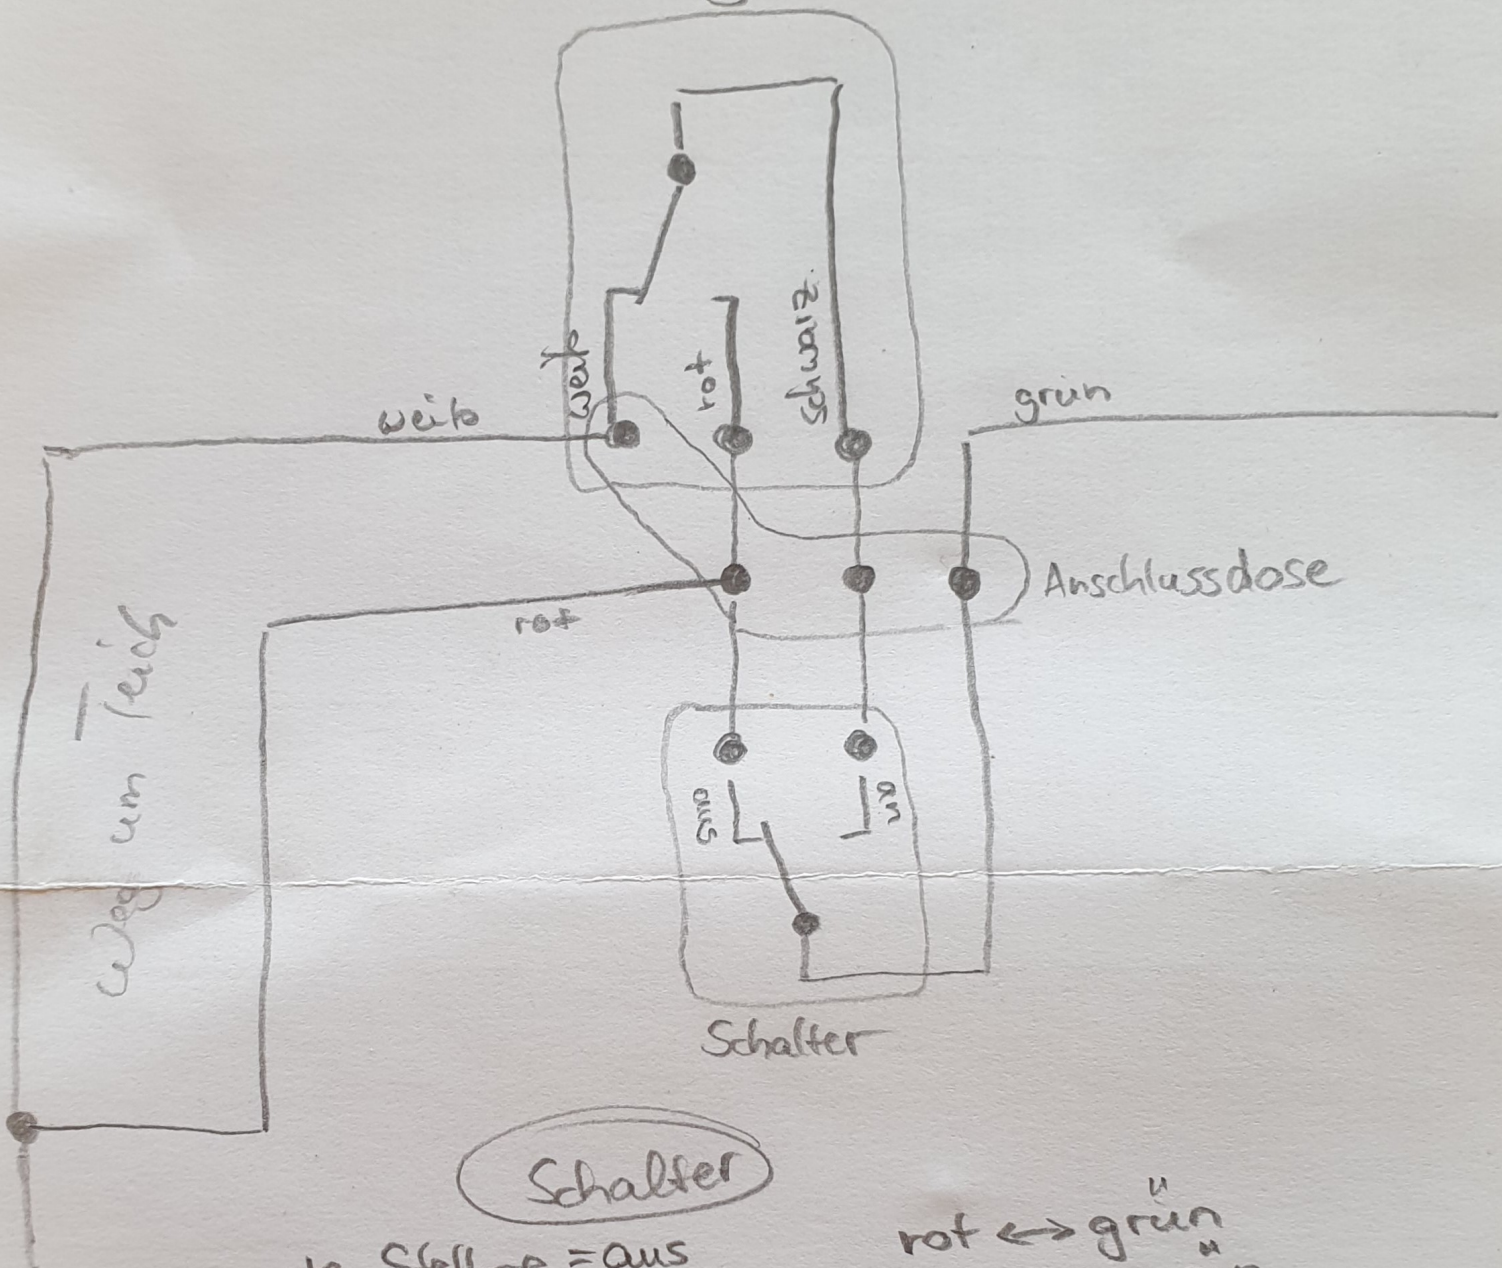 weiß
rot
schwarz
weiß
grün
Anschlussdose
rot
Weg um Teich
aus
an
Schalter
Schalter
rot ↔ grün
= aus